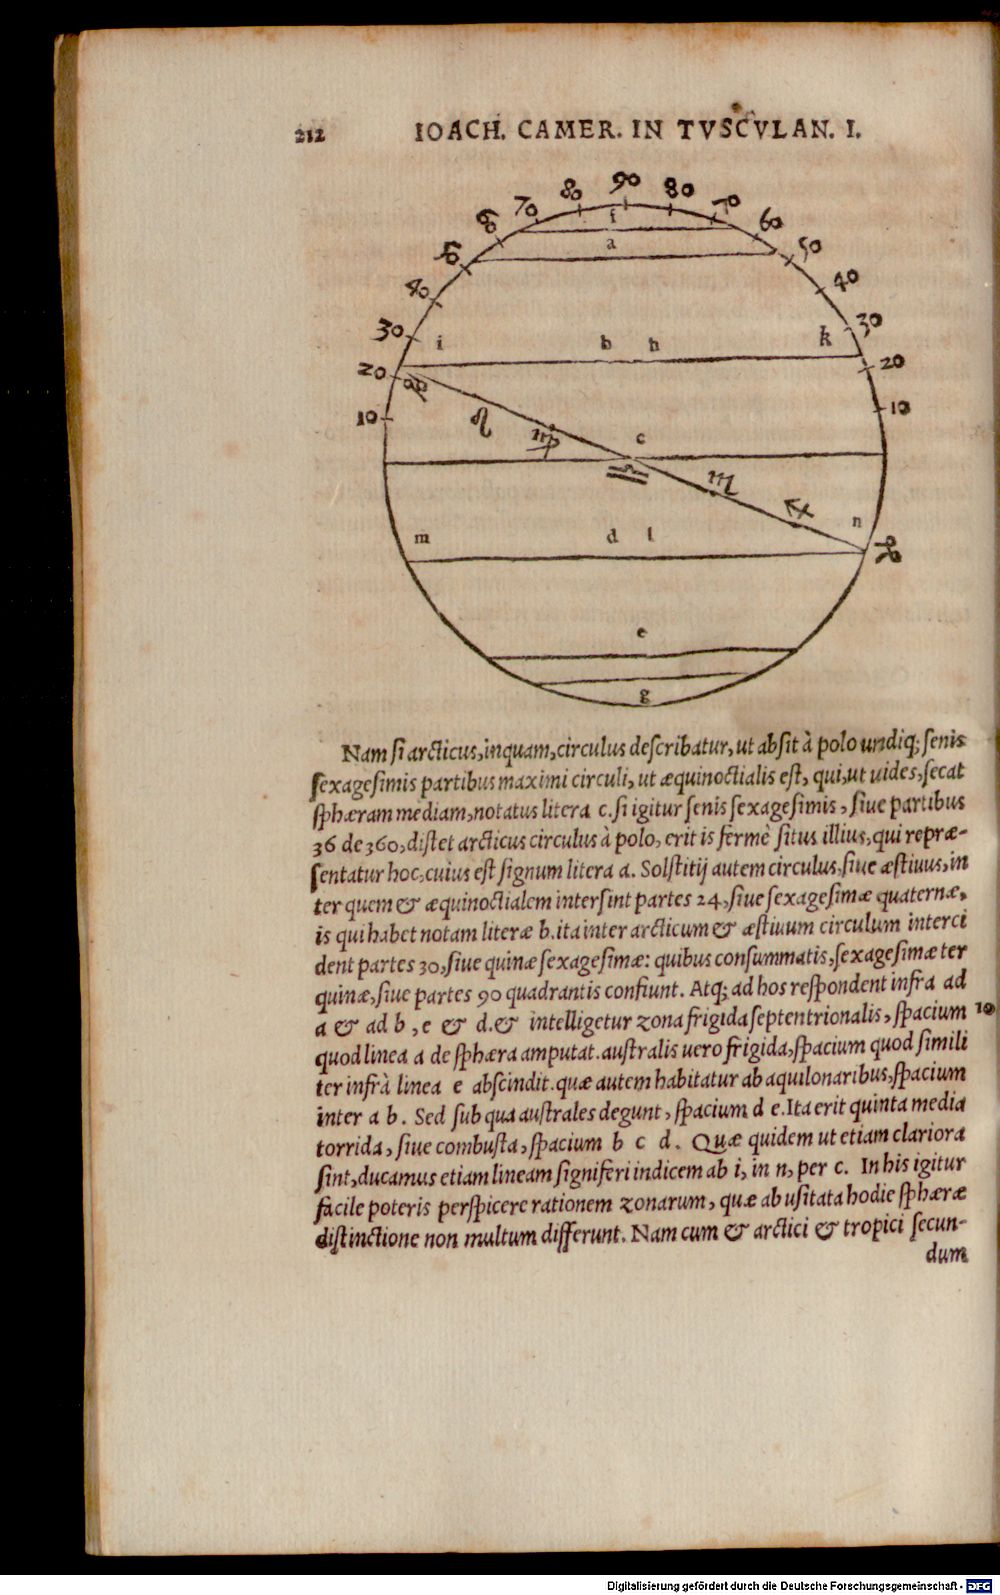 212 IOACH. CAMER. IN TVSCVLAN. I.
90
80 80
70 70
60 60
50 50
40 40
30 30
20 20
10 10
f
a
i b h k
♋ ♌ ♍ c
♎ ♏ ♐ n
m d l ♑
e
g
Nam si arcticus, inquam, circulus describatur, ut absit à polo undiq; senis
sexagesimis partibus maximi circuli, ut æquinoctialis est, qui, ut uides, secat
sphæram mediam, notatus litera c. si igitur senis sexagesimis, siue partibus
36 de 360, distet arcticus circulus à polo, erit is fermè situs illius, qui repræ-
sentatur hoc, cuius est signum litera a. Solstitij autem circulus, siue æstiuus, in
ter quem & æquinoctialem intersint partes 24, siue sexagesimæ quaternæ,
is qui habet notam literæ b. ita inter arcticum & æstiuum circulum interci
dent partes 30, siue quinæ sexagesimæ: quibus consummatis, sexagesimæ ter
quinæ, siue partes 90 quadrantis confiunt. Atq; ad hos respondent infra ad
a & ad b, e & d. & intelligetur zona frigida septentrionalis, spacium 10
quod linea a de sphæra amputat. australis uero frigida, spacium quod simili
ter infrà linea e abscindit. quæ autem habitatur ab aquilonaribus, spacium
inter a b. Sed sub qua australes degunt, spacium d e. Ita erit quinta media
torrida, siue combusta, spacium b c d. Quæ quidem ut etiam clariora
sint, ducamus etiam lineam signiferi indicem ab i, in n, per c. In his igitur
facile poteris perspicere rationem zonarum, quæ ab usitata hodie sphæræ
distinctione non multum differunt. Nam cum & arctici & tropici secun-
dum
Digitalisierung gefördert durch die Deutsche Forschungsgemeinschaft - DFG